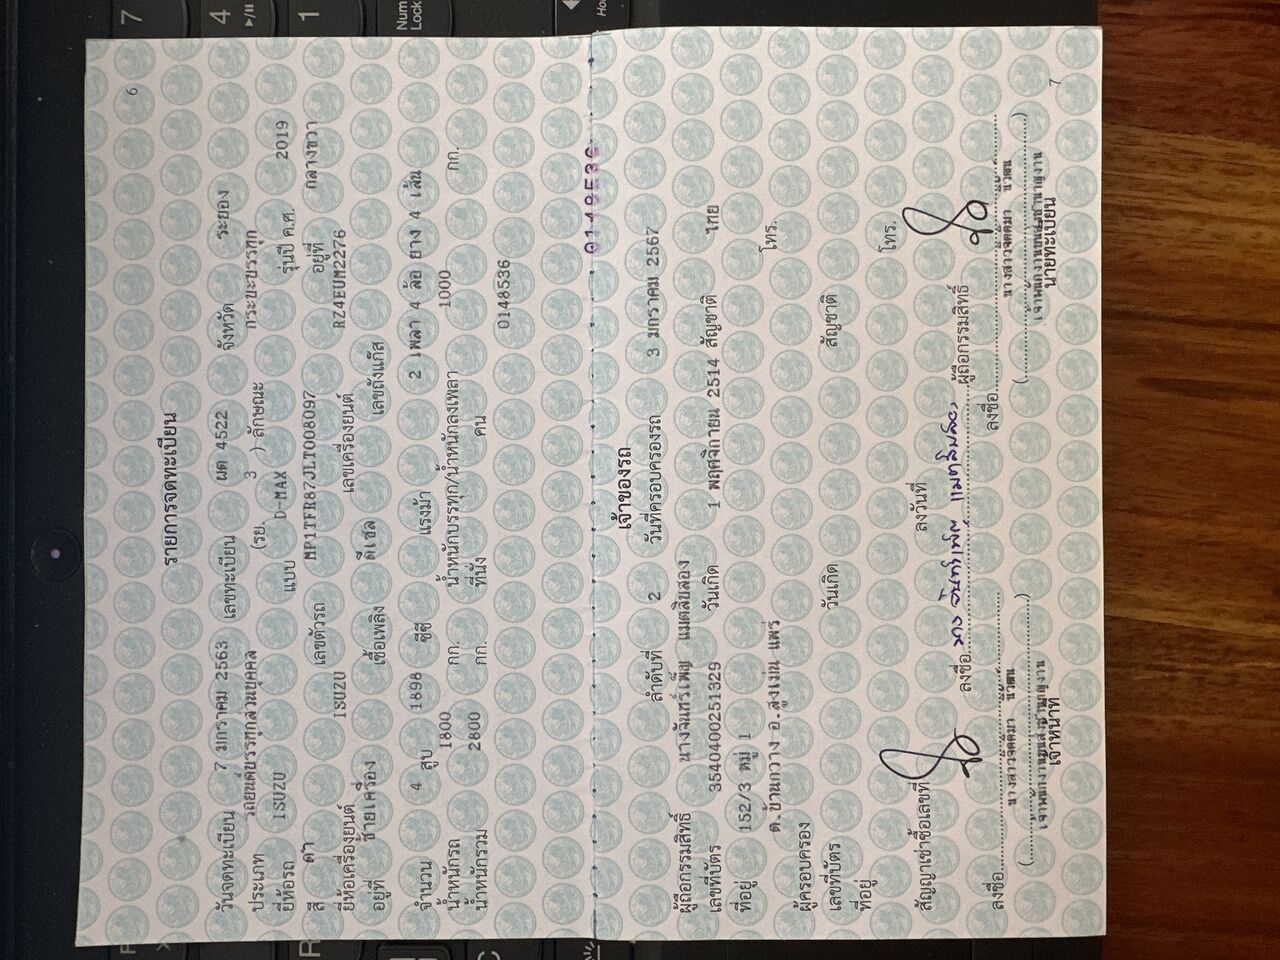 6
รายการจดทะเบียน
วันจดทะเบียน 7 มกราคม 2563 เลขทะเบียน ผต 4522 จังหวัด ระยอง
ประเภท รถยนต์บรรทุกส่วนบุคคล (รย. 3 ) ลักษณะ กระบะบรรทุก
ยี่ห้อรถ ISUZU แบบ D-MAX รุ่นปี ค.ศ. 2019
สี ดำ เลขตัวรถ MP1TFR87JLT008097 อยู่ที่ กลางขวา
ยี่ห้อเครื่องยนต์ ISUZU เลขเครื่องยนต์ RZ4EUM2276
อยู่ที่ ซ้ายเครื่อง เชื้อเพลิง ดีเซล เลขถังแก๊ส
จำนวน 4 สูบ 1898 ซีซี แรงม้า 2 เพลา 4 ล้อ ยาง 4 เส้น
น้ำหนักรถ 1800 กก. น้ำหนักบรรทุก/น้ำหนักลงเพลา 1000 กก.
น้ำหนักรวม 2800 กก. ที่นั่ง คน
0148536
0148536
เจ้าของรถ
ลำดับที่ 2 วันที่ครอบครองรถ 3 มกราคม 2567
ผู้ถือกรรมสิทธิ์ นางจันทร์เพ็ญ แมตสิบสอง
เลขที่บัตร 3540400251329 วันเกิด 1 พฤศจิกายน 2514 สัญชาติ ไทย
ที่อยู่ 152/3 หมู่ 1
ต.บ้านกวาง อ.สูงเม่น แพร่ โทร.
ผู้ครอบครอง
เลขที่บัตร วันเกิด สัญชาติ
ที่อยู่
โทร.
สัญญาเช่าซื้อเลขที่ ลงวันที่
ลงชื่อ นาง จันทร์เพ็ญ แมตสิบสอง ผู้ถือกรรมสิทธิ์
ลงชื่อ ลงชื่อ
นางสาวจิตติมา
นางสาวจิตติมา
เจ้าหน้าที่ นายทะเบียน
7